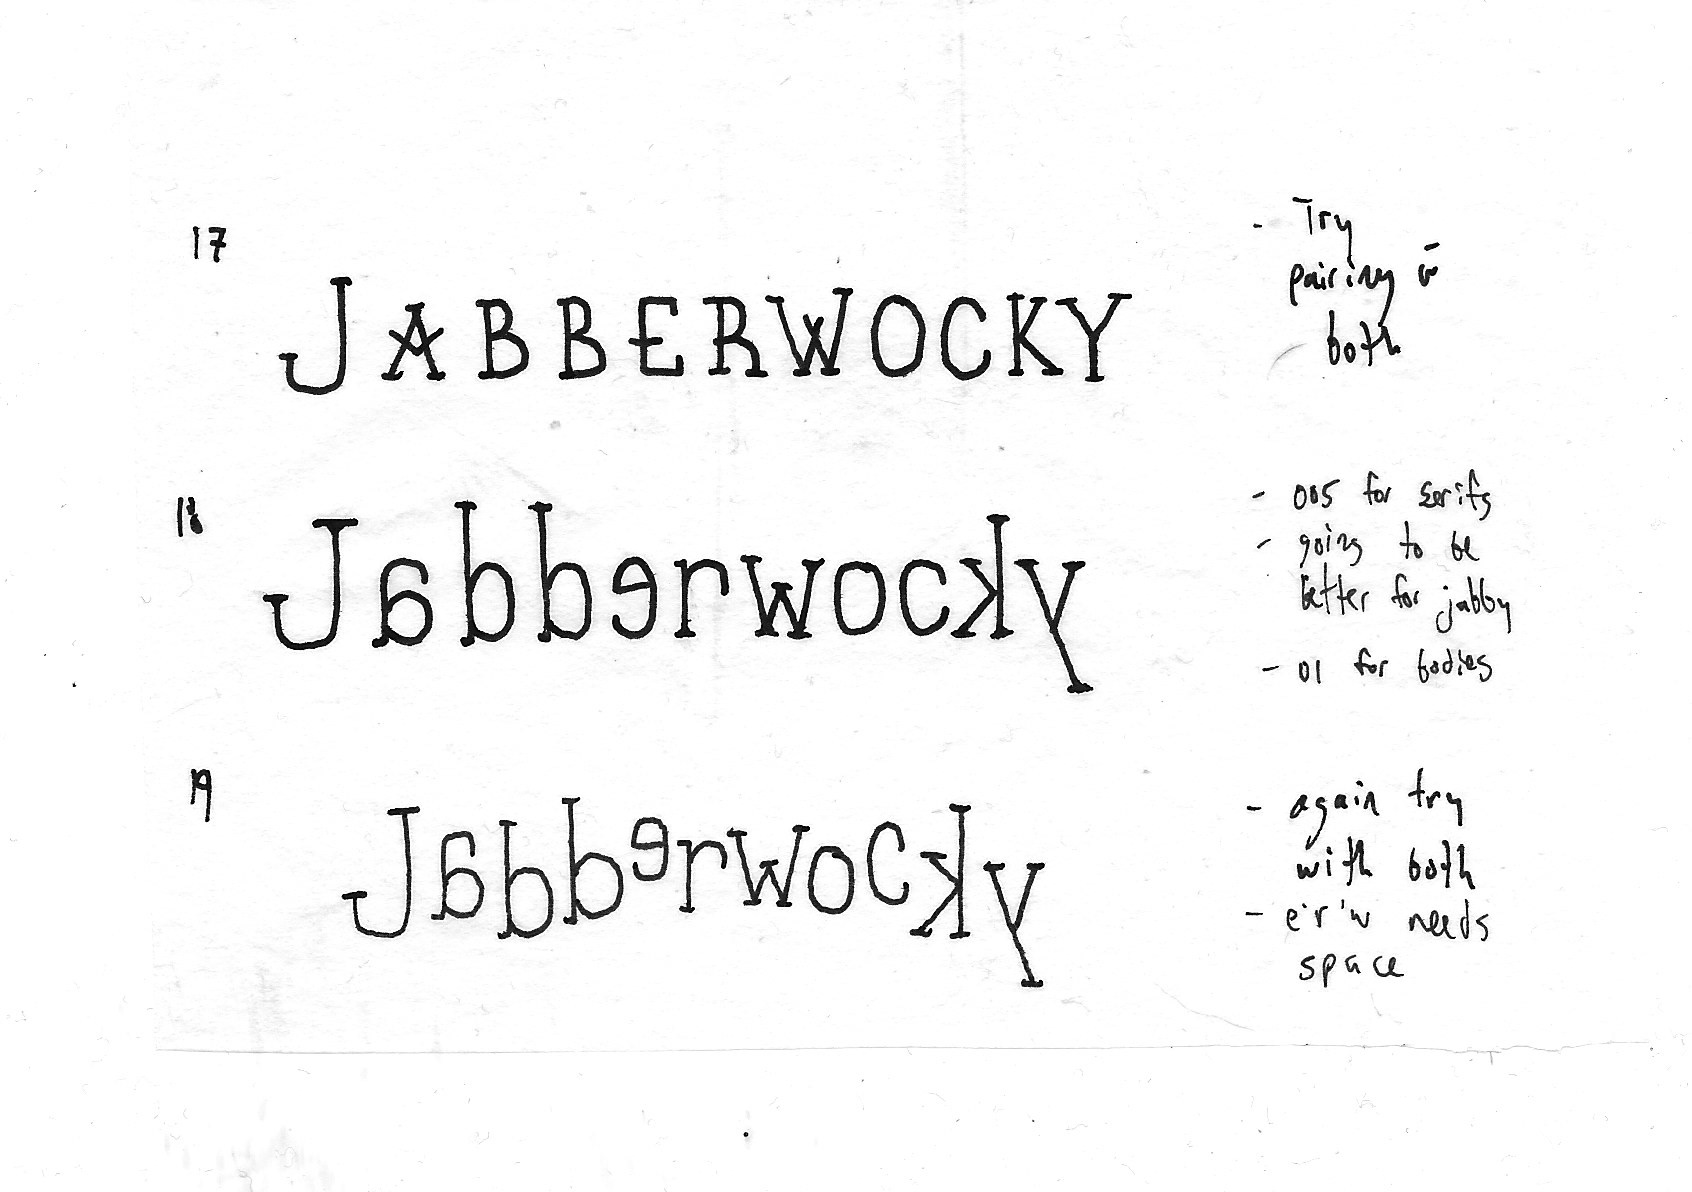 17
JABBERWOCKY
- Try
pairing
both
18
Jabberwocky
- 005 for serifs
- going to be
better for jabby
- 01 for bodies
19
Jabberwocky
- again try
with both
- e'r'w needs
space